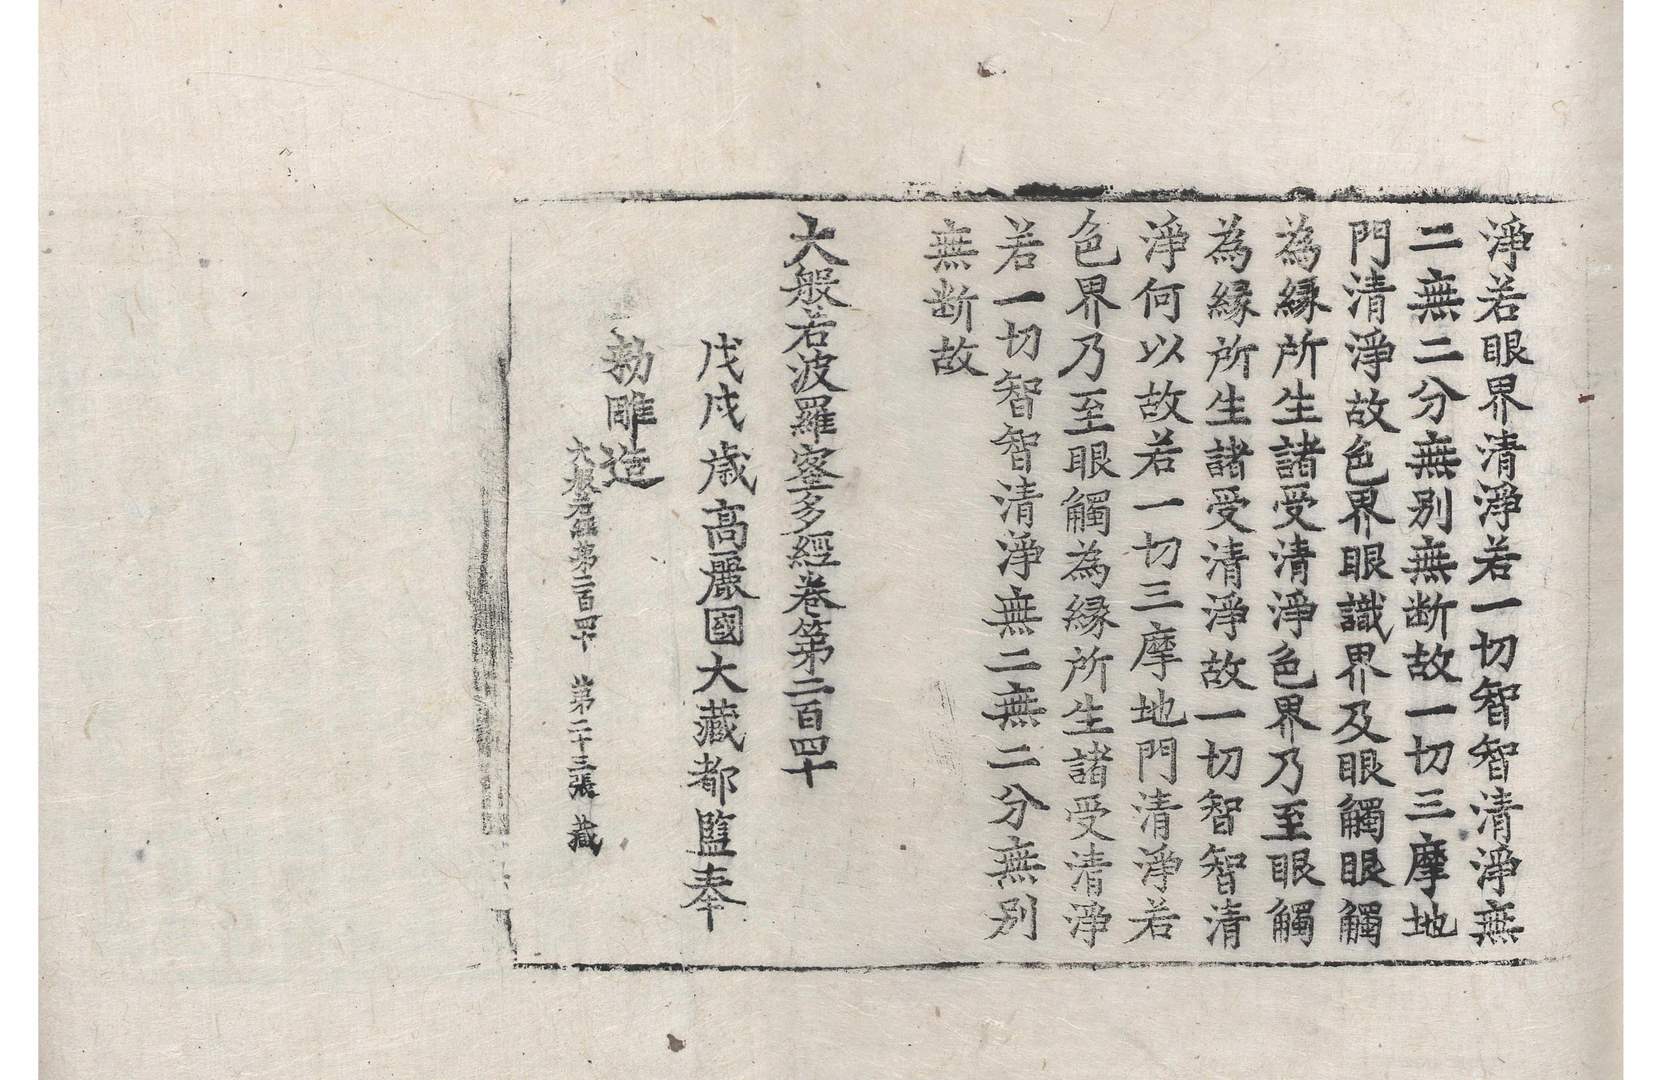 淨若眼界清淨若一切智智清淨無
二無二分無別無断故一切三摩地
門清淨故色界眼識界及眼觸眼觸
為縁所生諸受清淨色界乃至眼觸
為縁所生諸受清淨故一切智智清
淨何以故若一切三摩地門清淨若
色界乃至眼觸為縁所生諸受清淨
若一切智智清淨無二無二分無別
無断故
大般若波羅蜜多經卷第二百四十
戊戌歳高麗國大藏都監奉
勑雕造
大般若經第二百四十 第二十三張 藏